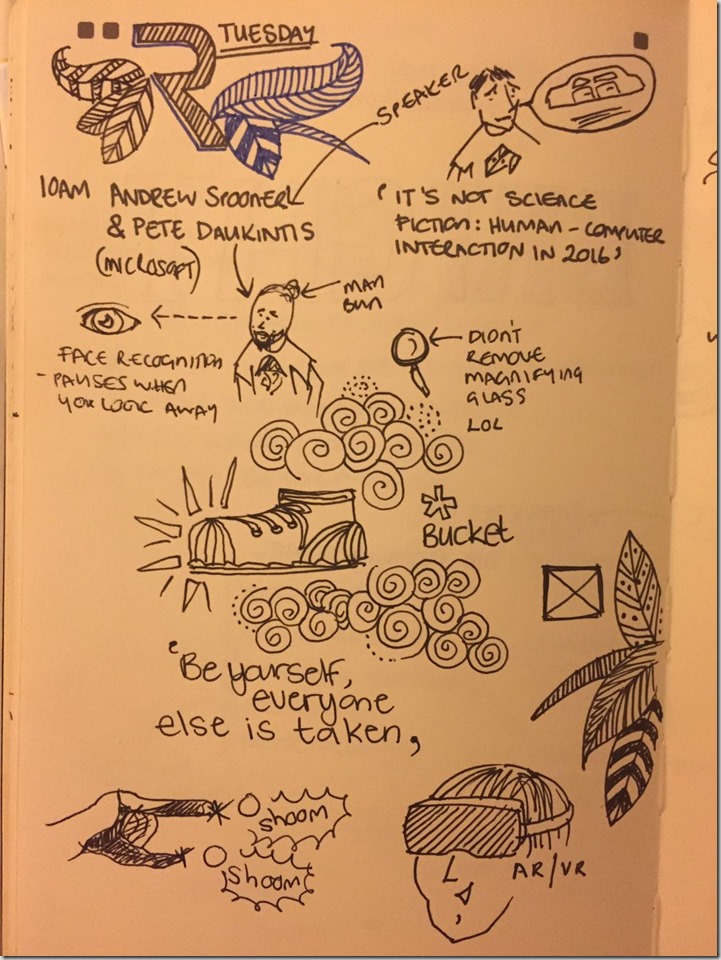 R
TUESDAY
SPEAKER
10AM ANDREW SPOONER
& PETE DAUKINTIS
(MICROSOFT)
'IT'S NOT SCIENCE
FICTION: HUMAN-COMPUTER
INTERACTION IN 2016'
MAN
BUN
FACE RECOGNITION
- PAUSES WHEN
YOU LOOK AWAY
DIDN'T
REMOVE
MAGNIFYING
GLASS
LOL
* BUCKET
'Be yourself,
everyone
else is taken,
shoom
shoom
AR/VR